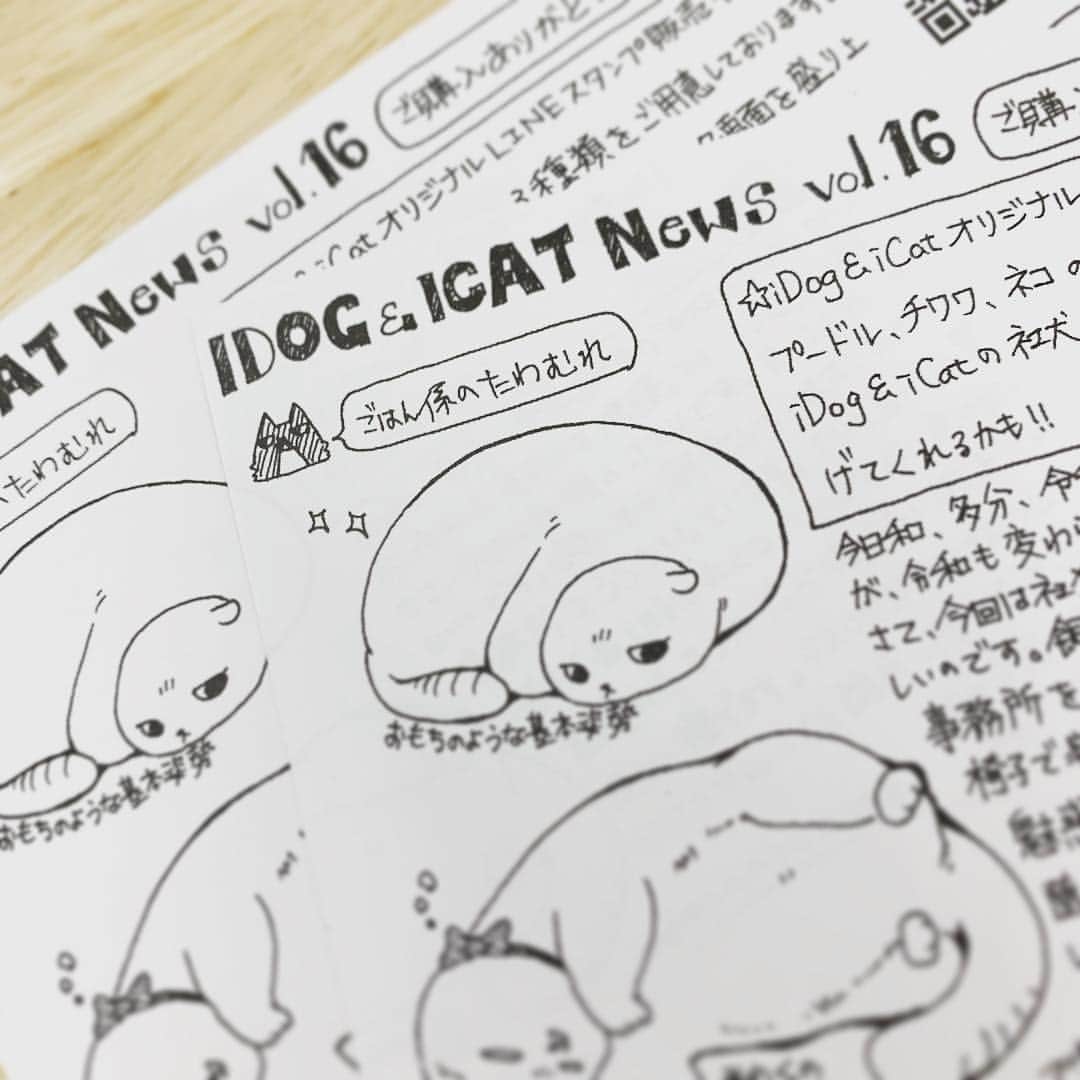 ご購入ありがと
vol.16
CAT News
iCat オリジナルLINEスタンプ販売
3種類をご用意しております
画面を盛り上
たわむれ
おもちのような基本姿勢
IDOG & ICAT News vol.16
ご購入
ごはん係のたわむれ
おもちのような基本姿勢
☆iDog&iCatオリジナル
プードル、チワワ、ネコの
iDog&iCatの社犬
げてくれるかも!!
今日和、多分、令
が、令和も変わら
さて、今回は社
しいのです。
事務所を
椅子で
魅惑